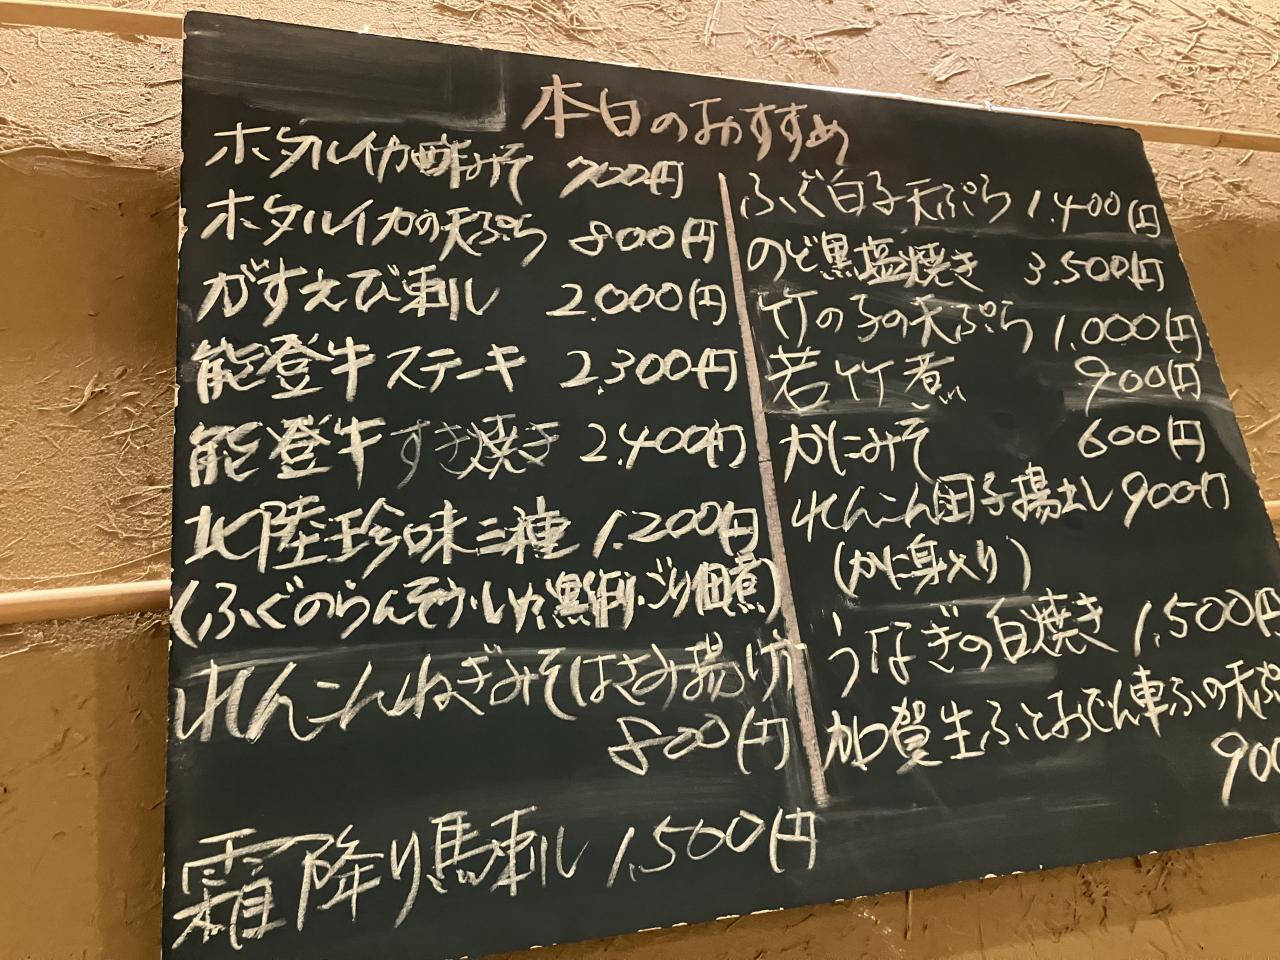 本日のおすすめ
ホタルイカ酢みそ 700円
ホタルイカの天ぷら 800円
がすえび刺し 2.000円
能登牛ステーキ 2.300円
能登牛すき焼き 2.400円
北陸珍味三種 1.200円
(ふぐのらんそう・いか黒作・ごり佃煮)
れんこんねぎみそはさみ揚げ
800円
霜降り馬刺し 1,500円
ふぐ白子天ぷら 1.400円
のど黒塩焼き 3.500円
竹の子の天ぷら 1.000円
若竹煮 900円
かにみそ 600円
れんこん団子揚出し 900円
(かに身入り)
うなぎの白焼き 1,500円
加賀生ふとおでん車ふの天ぷ
900